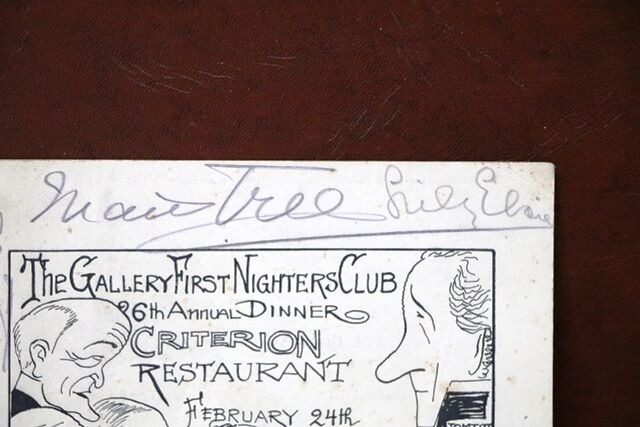 Maud Tree Lily Elsie
THE GALLERY FIRST NIGHTERS CLUB
26th ANNUAL DINNER
CRITERION
RESTAURANT
FEBRUARY 24th